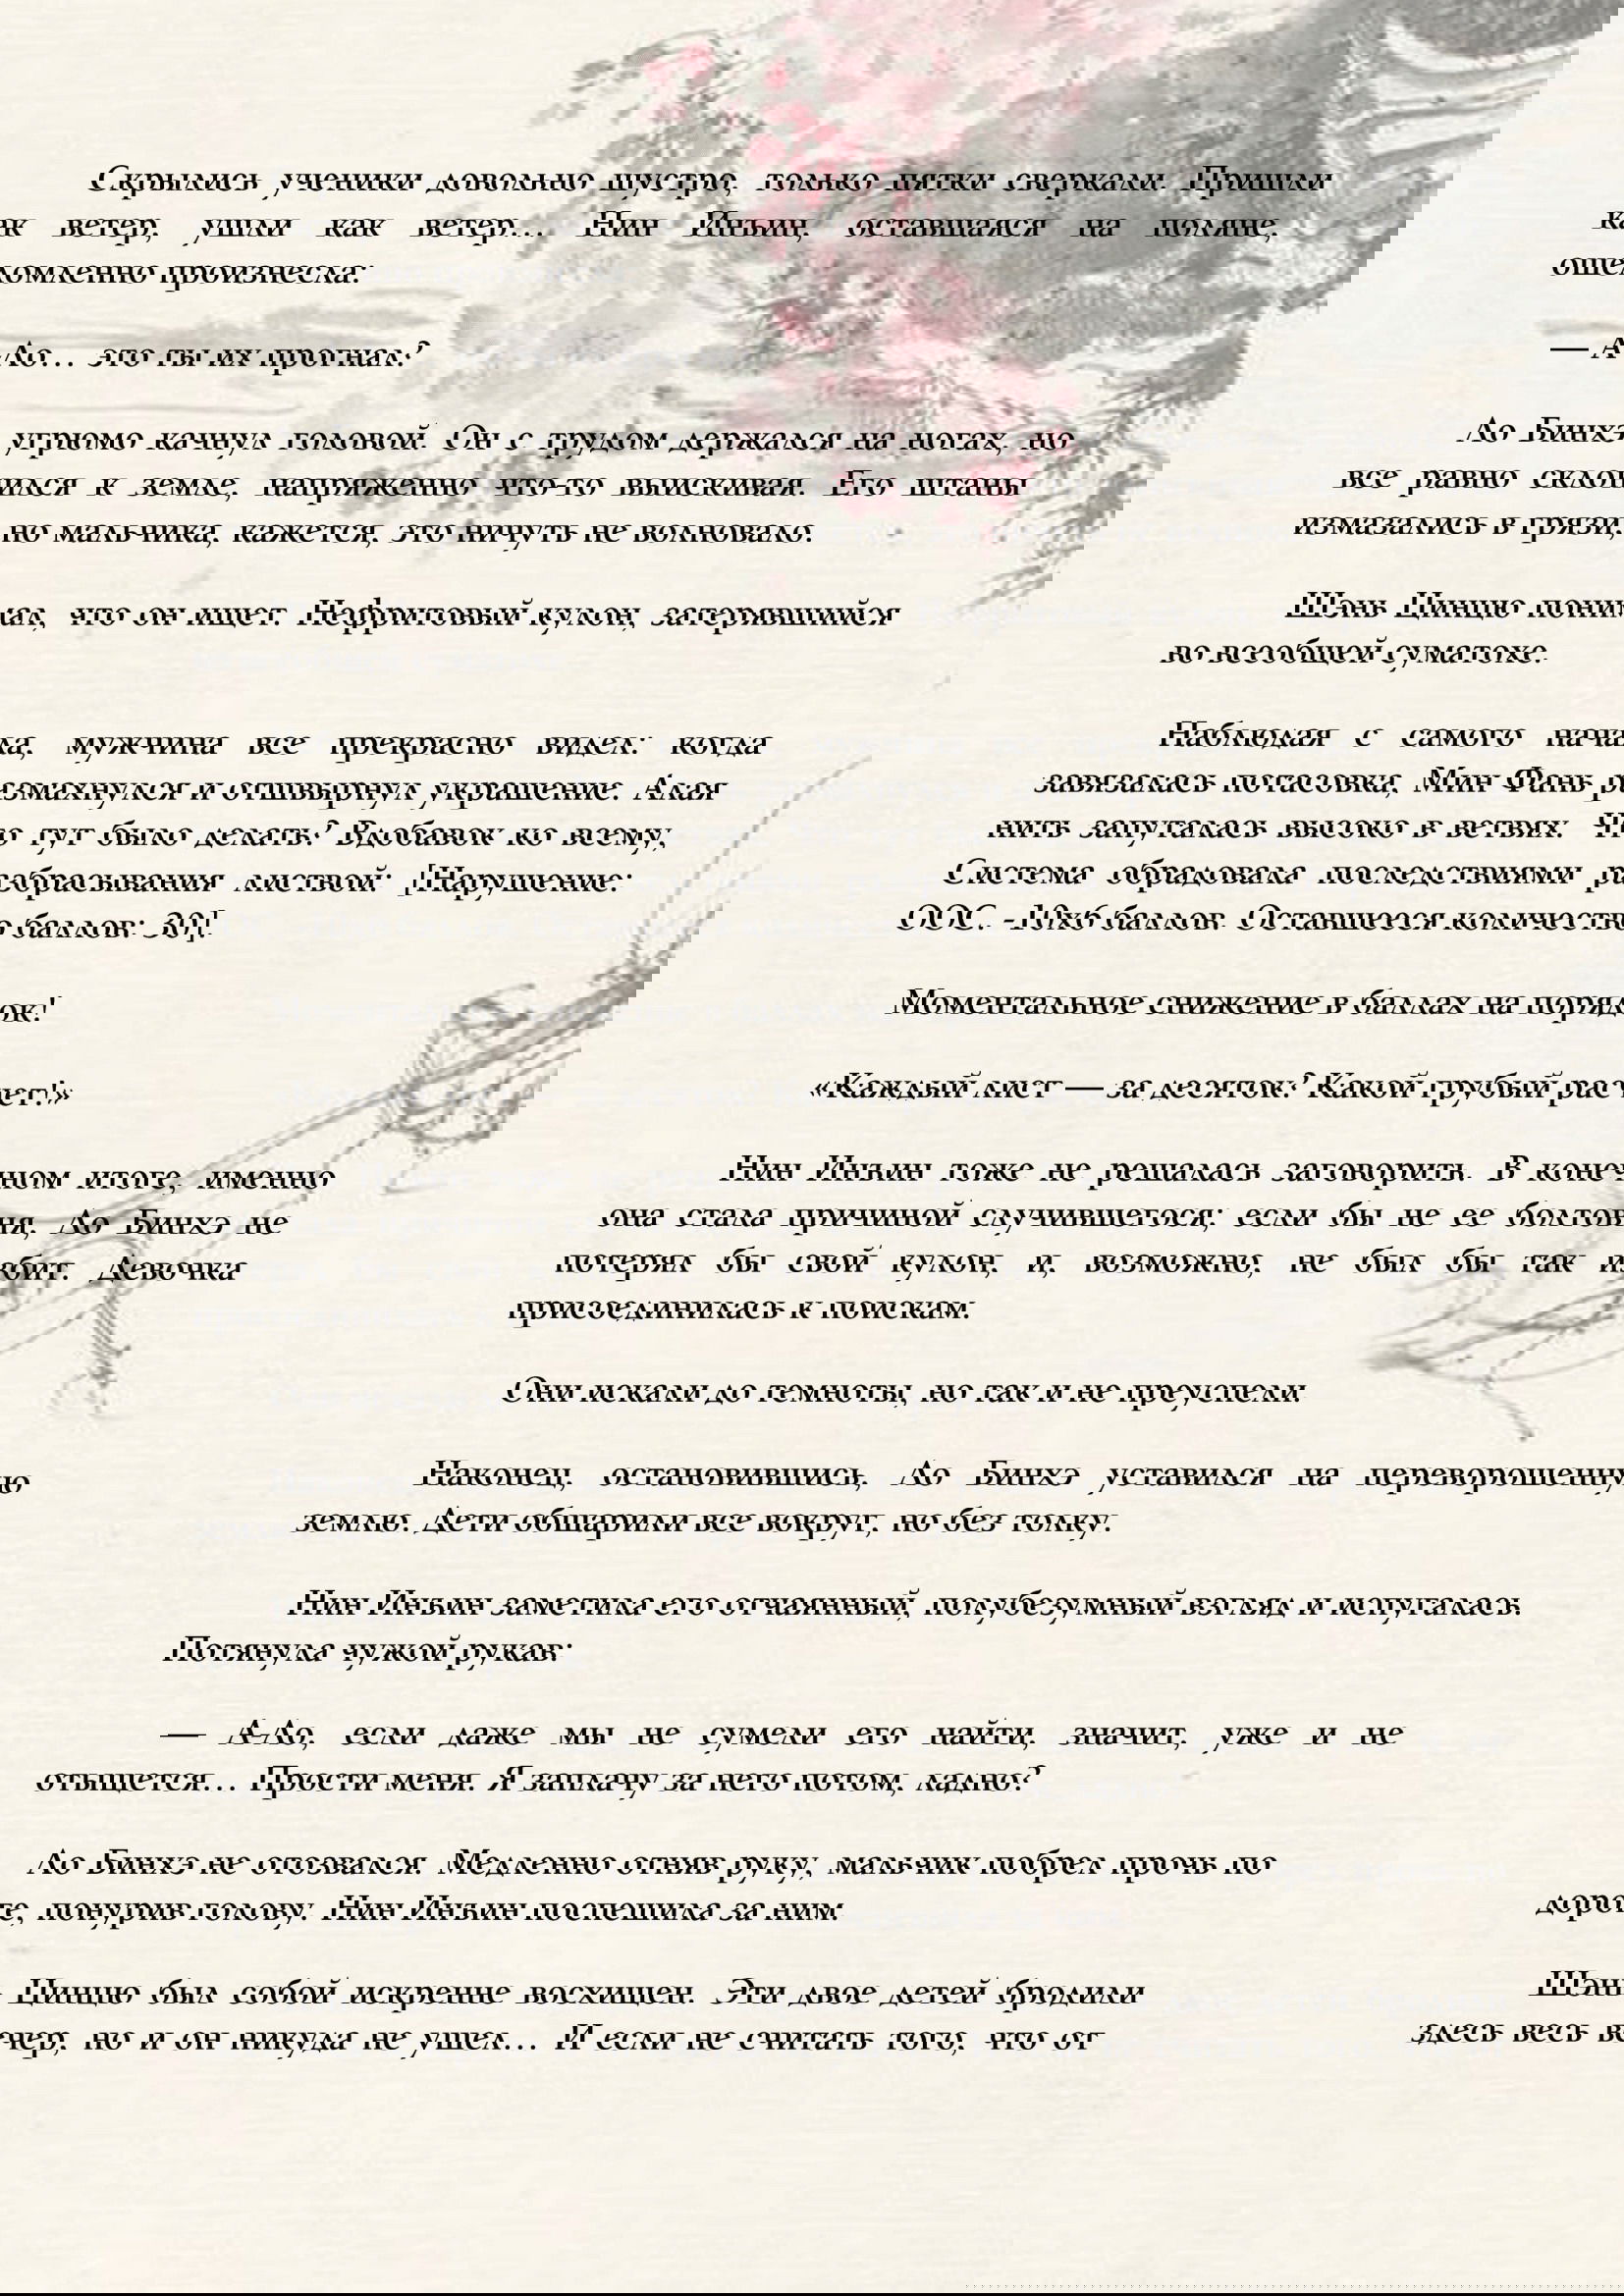 Скрылись ученики довольно шустро, только пятки сверкали. Пришли
как ветер, ушли как ветер… Нин Инъин, оставшаяся на поляне,
ошеломленно произнесла:
— А-Ло… это ты их прогнал?
Ло Бинхэ угрюмо качнул головой. Он с трудом держался на ногах, но
все равно склонился к земле, напряженно что-то выискивая. Его штаны
измазались в грязи, но мальчика, кажется, это ничуть не волновало.
Шэнь Цинцю понимал, что он ищет. Нефритовый кулон, затерявшийся
во всеобщей суматохе.
Наблюдая с самого начала, мужчина все прекрасно видел: когда
завязалась потасовка, Мин Фань размахнулся и отшвырнул украшение. Алая
нить запуталась высоко в ветвях. Что тут было делать? Вдобавок ко всему,
Система обрадовала последствиями разбрасывания листвой: [Нарушение:
ООС. -10х6 баллов. Оставшееся количество баллов: 30].
Моментальное снижение в баллах на порядок!
«Каждый лист — за десяток? Какой грубый расчет!»
Нин Инъин тоже не решалась заговорить. В конечном итоге, именно
она стала причиной случившегося: если бы не ее болтовня, Ло Бинхэ не
потерял бы свой кулон, и, возможно, не был бы так избит. Девочка
присоединилась к поискам.
Они искали до темноты, но так и не преуспели.
Наконец, остановившись, Ло Бинхэ уставился на переворошенную
землю. Дети обшарили все вокруг, но без толку.
Нин Инъин заметила его отчаянный, полубезумный взгляд и испугалась.
Потянула чужой рукав:
— А-Ло, если даже мы не сумели его найти, значит, уже и не
отыщется… Прости меня. Я заплачу за него потом, ладно?
Ло Бинхэ не отозвался. Медленно отняв руку, мальчик побрел прочь по
дороге, понурив голову. Нин Инъин поспешила за ним.
Шэнь Цинцю был собой искренне восхищен. Эти двое детей бродили
здесь весь вечер, но и он никуда не ушел… И если не считать того, что от